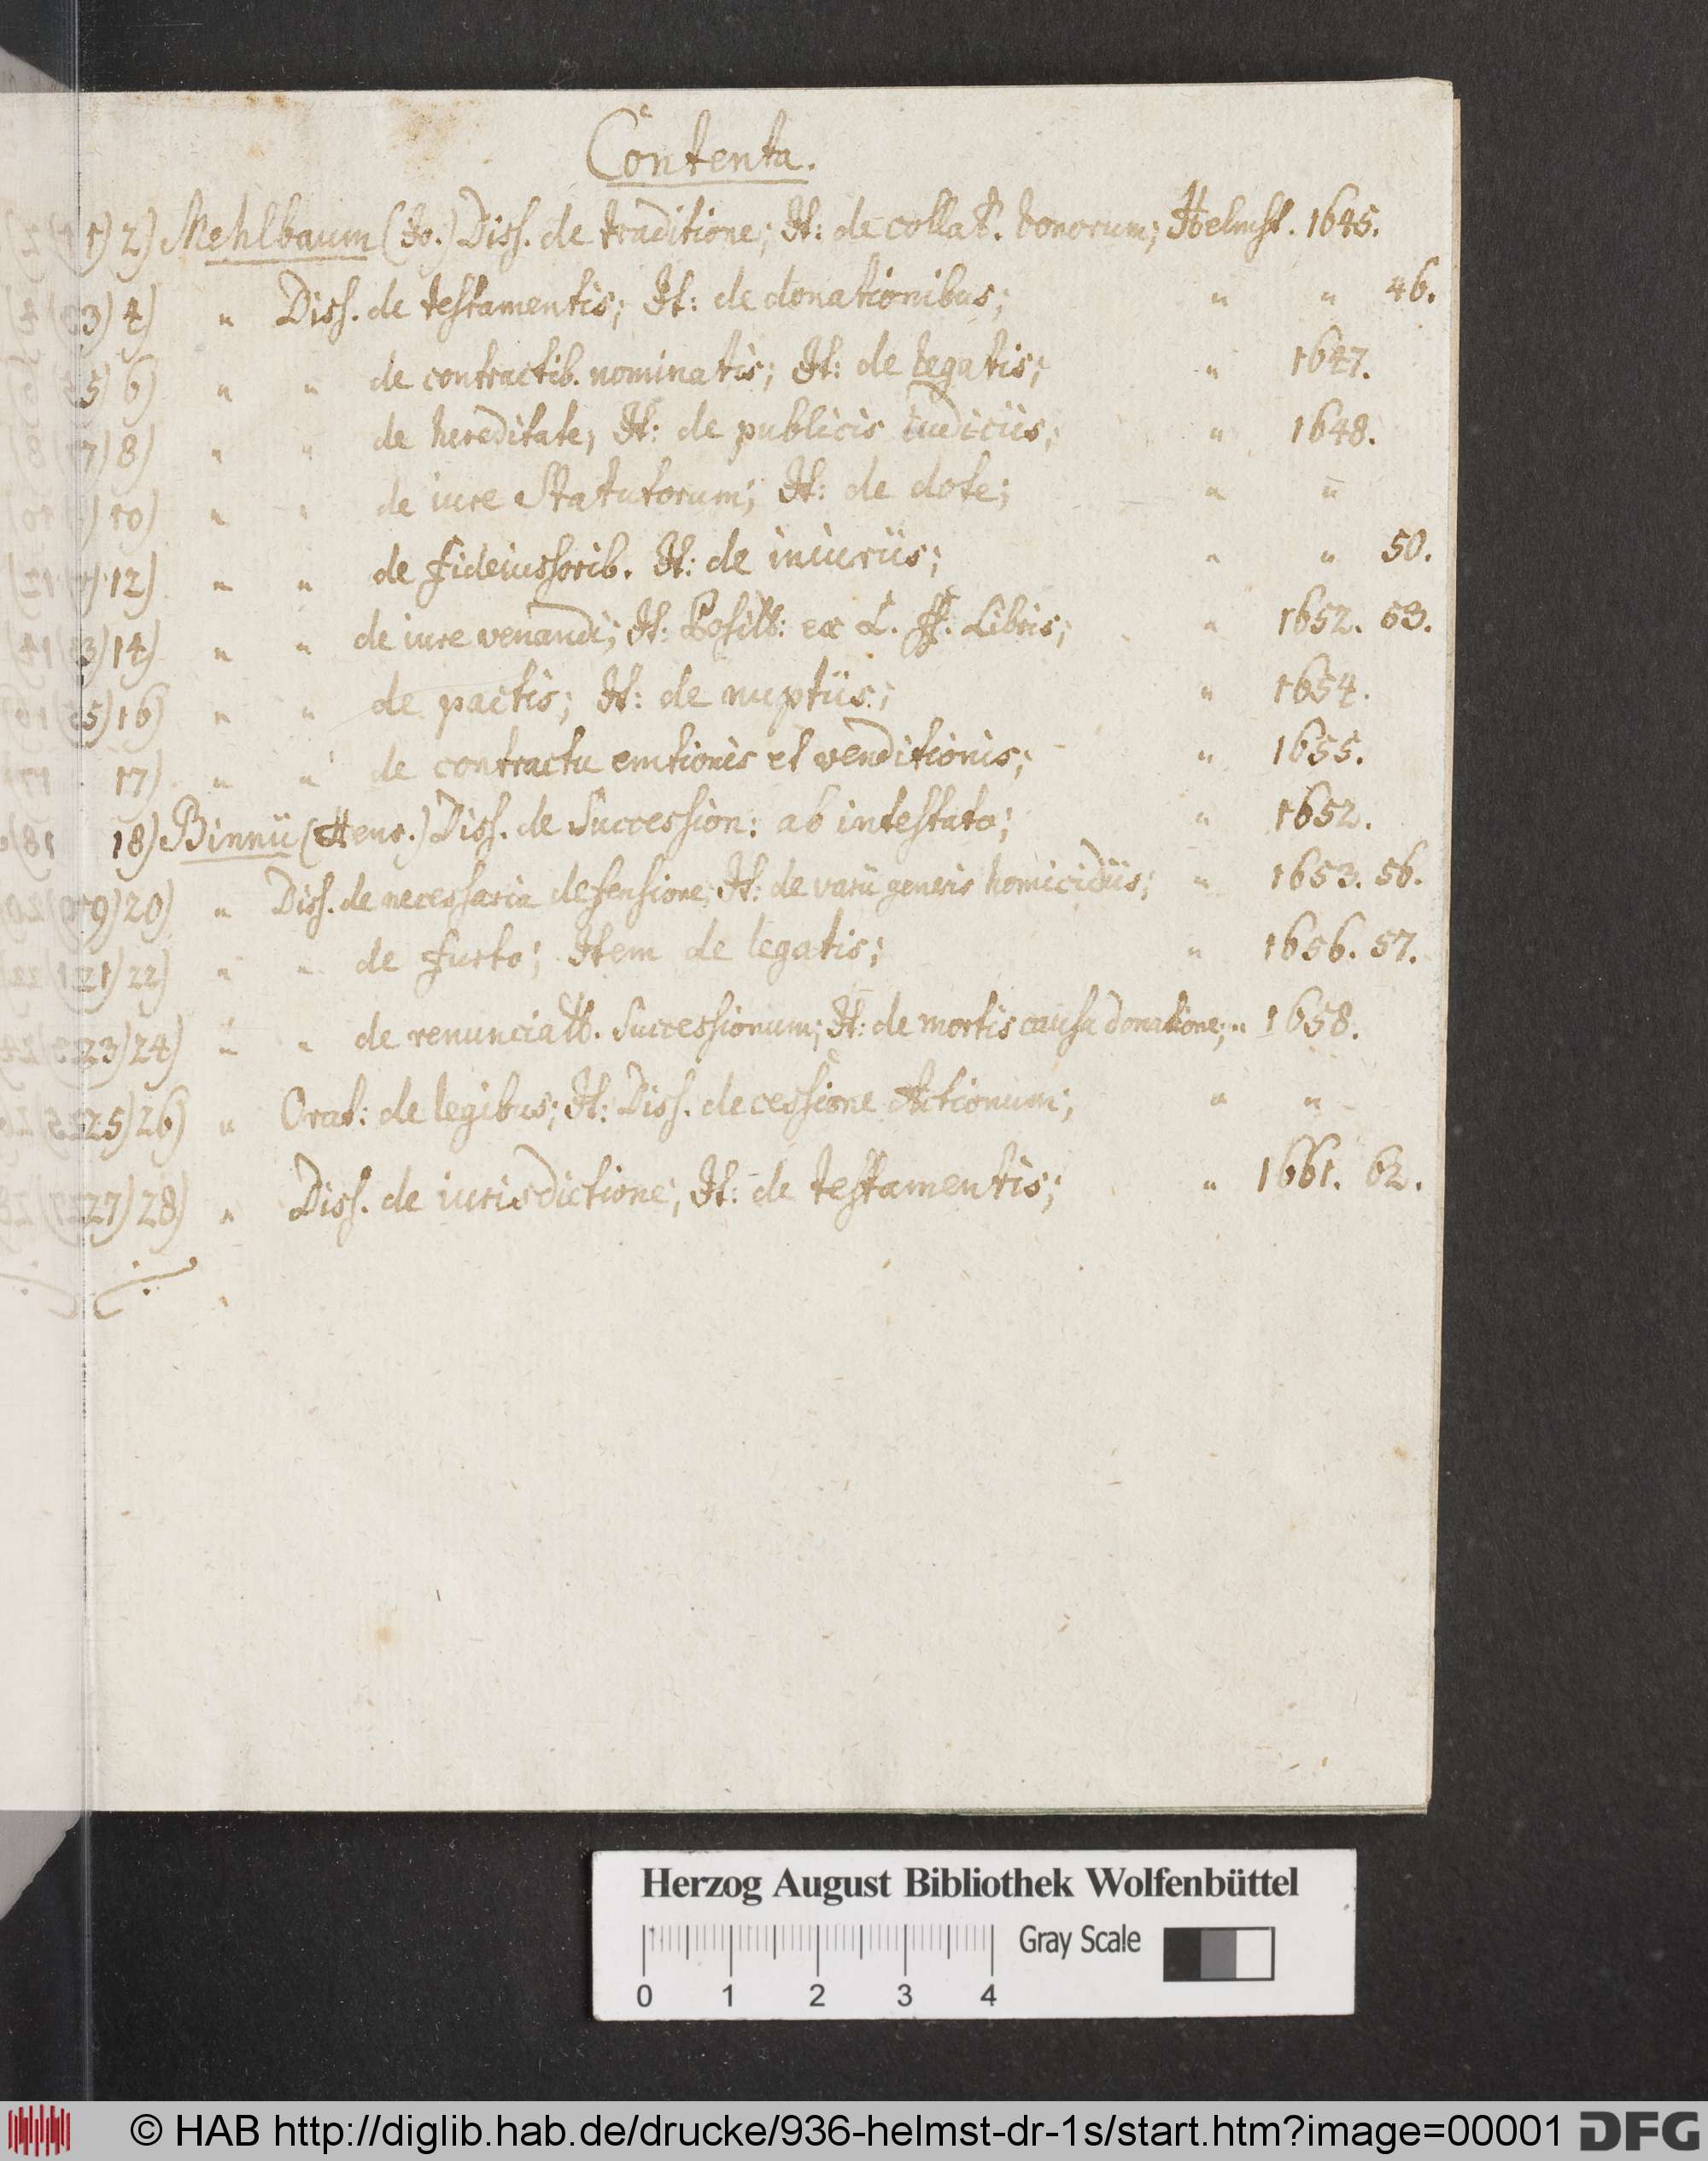 Contenta.
1) 2) Mehlbaum (Jo.) Diss. de traditione; It: de collat. bonorum; Helmst. 1645.
3) 4) " Diss. de testamentis; It: de donationibus; " " 46.
5) 6) " " de contractib. nominatis; It: de legatis; " 1647.
7) 8) " " de hereditate; It: de publicis iudiciis; " 1648.
) 10) " " de iure Statutorum; It: de dote; " "
) 12) " " de fideiussorib. It: de iniuriis; " " 50.
3) 14) " " de iure venandi; It: ex L. ff. Libris; " 1652. 53.
5) 16) " " de pactis; It: de nuptiis; " 1654.
17) " " de contractu emtionis et venditionis; " 1655.
18) Binnii (Henr.) Diss. de Succession: ab intestato; " 1652.
19) 20) " Diss. de necessaria defensione; It: de varii generis homicidiis; " 1653. 56.
21) 22) " " de furto; Item de legatis; " 1656. 57.
23) 24) " " de renunciatt. Successionum; It: de mortis causa donatione; " 1658.
25) 26) " Orat: de legibus; It: Diss. de cessione Actionum; " "
27) 28) " Diss. de iurisdictione; It: de testamentis; " 1661. 62.
Herzog August Bibliothek Wolfenbüttel
Gray Scale
0 1 2 3 4
© HAB http://diglib.hab.de/drucke/936-helmst-dr-1s/start.htm?image=00001 DFG